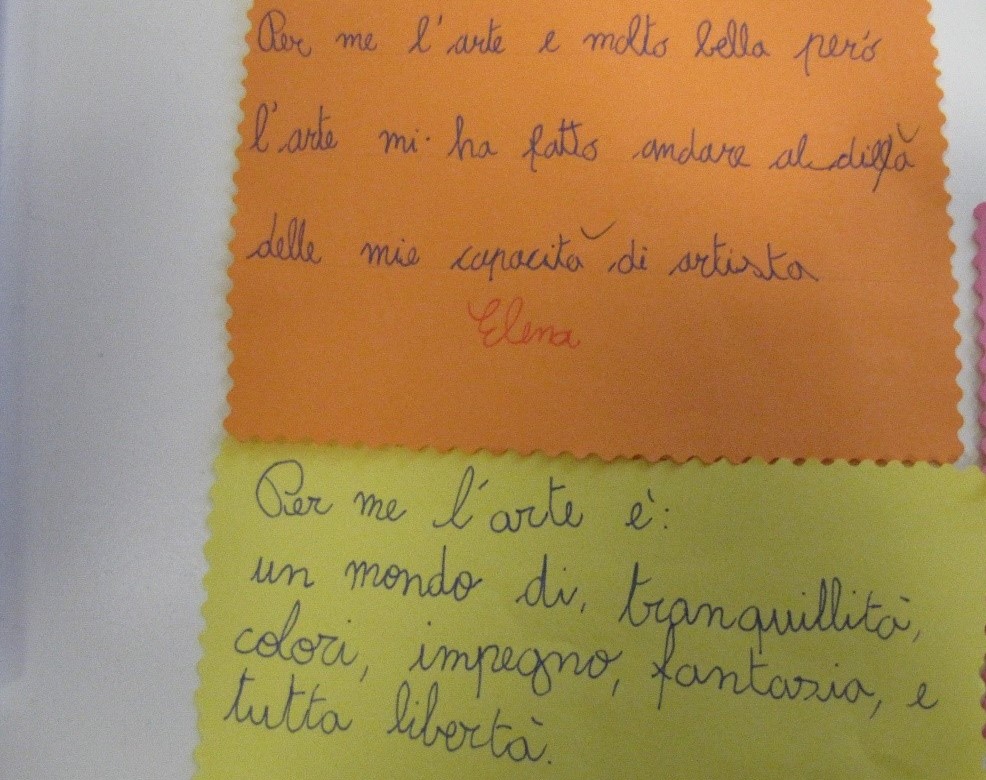 Per me l'arte e molto bella però
l'arte mi ha fatto andare al dillà
delle mie capacità di artista
Elena
Per me l'arte è:
un mondo di, tranquillità,
colori, impegno, fantasia, e
tutta libertà.